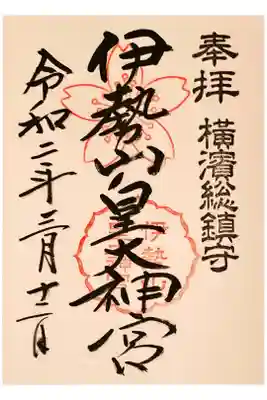 奉拝 横濱総鎮守
伊勢山皇大神宮
令和二年三月十二日